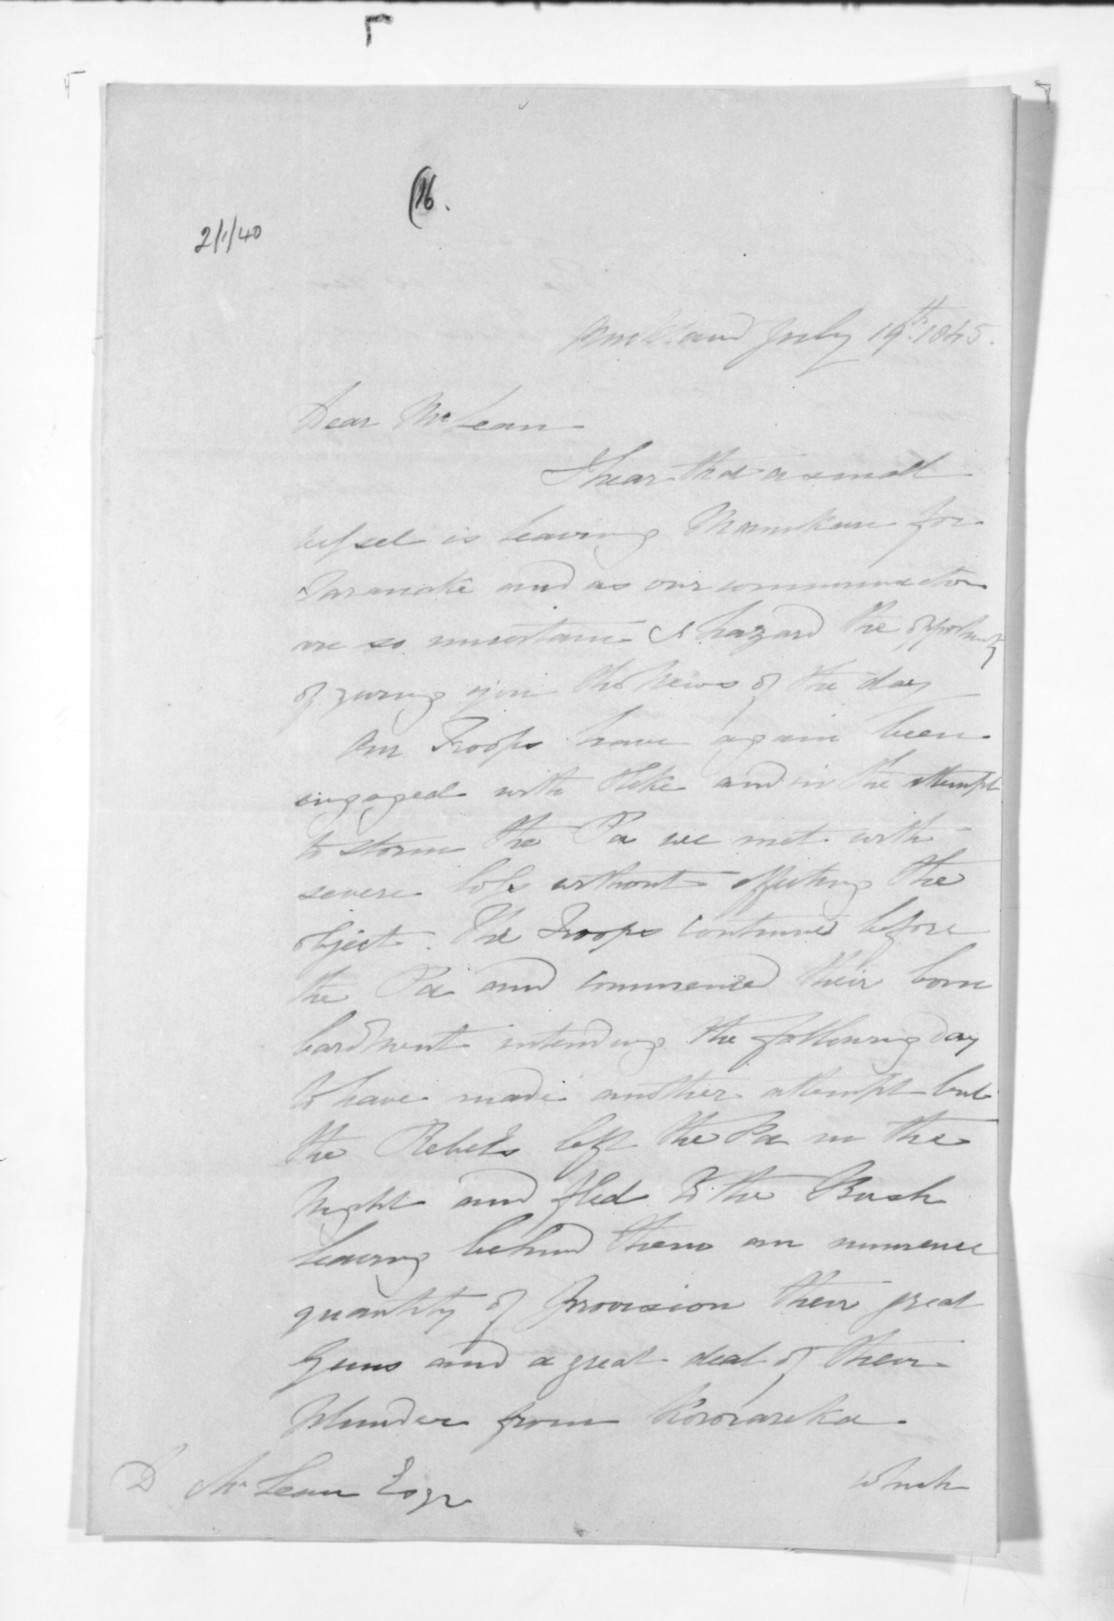 (16.
2/1/40
Auckland July 19th 1845.
Dear McLean
I hear that a small
vessel is leaving Manukau for
Taranake and as our communication
are so uncertain I hazard the opportunity
of giving you the News of the day
Our Troops have again been
engaged with Heke and in the attempt
to storm the Pa we met with
severe loss without effecting the
object. The Troops continued before
the Pa and commenced their bom
bardment intending the following day
to have made another attempt but
the Rebels left the Pa in the
Night and fled to the Bush
leaving behind them an immense
quantity of Provision their great
Guns and a great deal of their
plunder from Kororareka.
which
D McLean Esqr